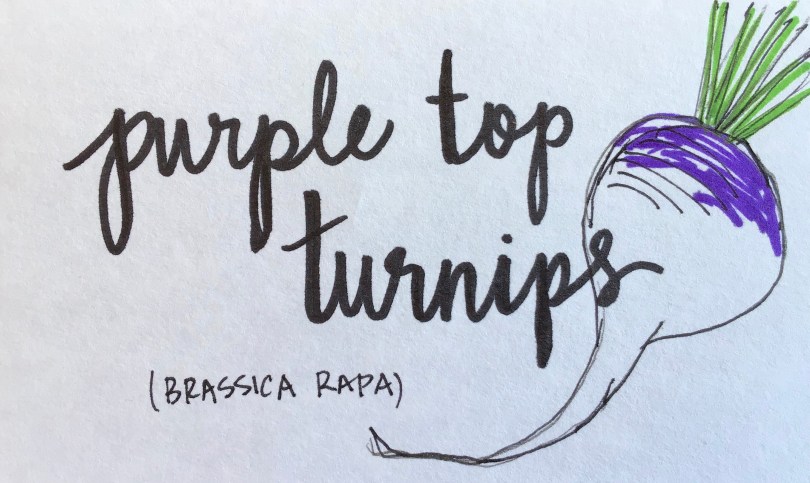 purple top
turnips
(BRASSICA RAPA)